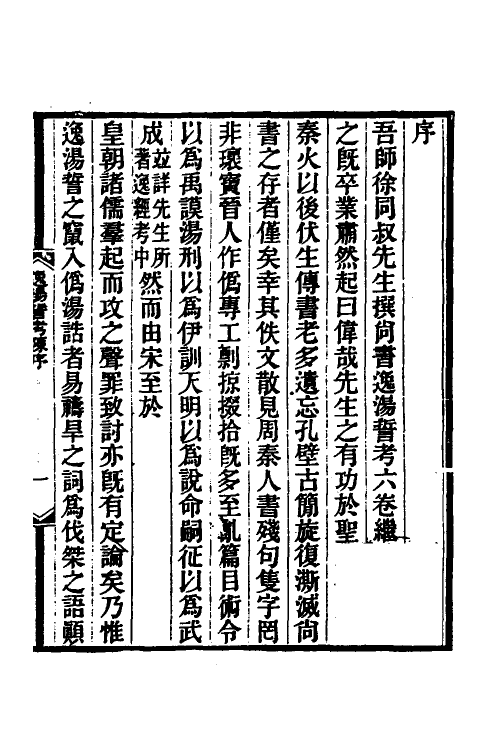 序
吾師徐同叔先生撰尚書逸湯誓考六卷繼
之既卒業肅然起曰偉哉先生之有功於聖
秦火以後伏生傳書老多遺忘孔壁古簡旋復澌滅尚
書之存者僅矣幸其佚文散見周秦人書殘句隻字罔
非瓌寶晉人作僞專工剽掠掇拾既多至亂篇目術令
以爲禹謨湯刑以爲伊訓天明以爲說命嗣征以爲武
成並詳先生所著逸經考中然而由宋至於
皇朝諸儒羣起而攻之聲罪致討亦既有定論矣乃惟
逸湯誓之竄入僞湯誥者易禱旱之詞爲伐桀之語顯
逸湯誓考 序 一